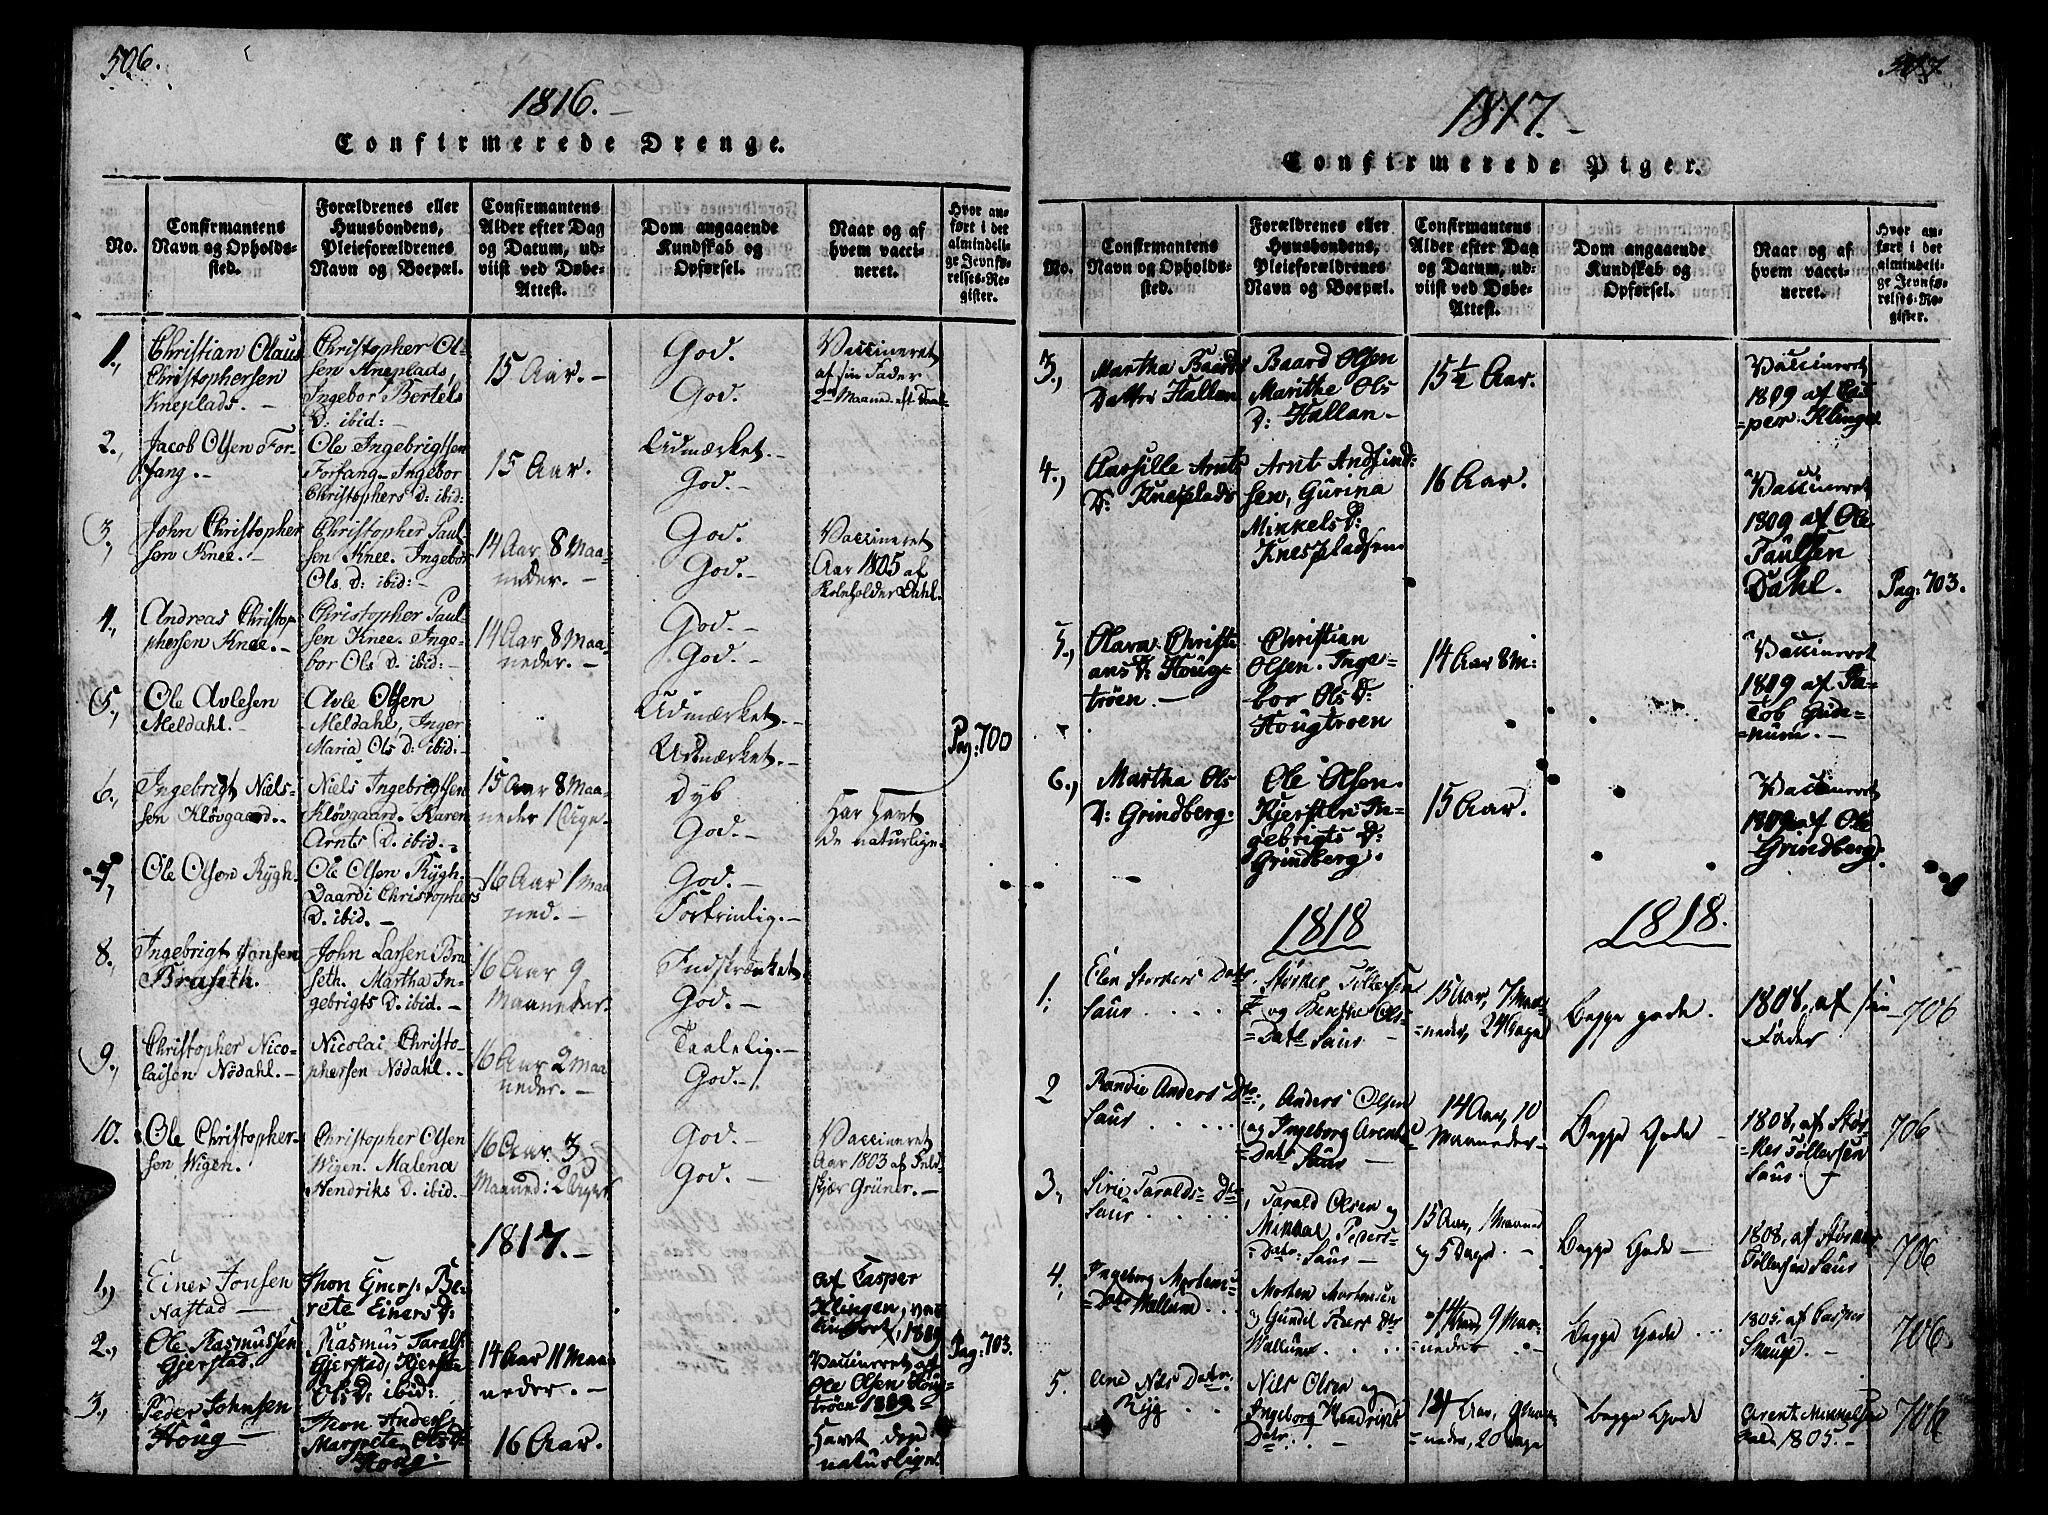 506.
1816.-
Confirmerede Drenge.
No.
Confirmantens
Navn og Opholds-
sted.
Forældrenes eller
Huusbondens,
Pleieforældrenes
Navn og Boepæl.
Confirmantens
Alder efter Dag
og Datum, ud-
viist ved Døbe-
Attest.
Dom angaaende
Kundskab og
Opførsel.
Naar og af
hvem vacci-
neret.
Hvor an-
ført i det
almindeli-
ge Jevnfø-
relses-Re-
gister.
1.
Christian Olaus
Christophersen
Kneplads. -
Christopher Ol-
sen Kneplads,
Ingebor Bertels
D: ibid: -
15 Aar. -
God.
God.
Vaccineret
af sin Fader
2.,
Jacob Olsen For-
fang. -
Ole Ingebrigtsen
Forfang - Ingebor
Christophers D: ibid:
15 Aar.
Udmærket. -
God. -
3.,
John Christopher
sen Knee. -
Christopher Paul-
sen Knee. Ingebor
Ols D: ibid: -
14 Aar 8 Maa-
neder. -
God.
God. -
Vaccineret
Aar 1805 af
Skoleholder Dahl.
4.,
Andreas Christo-
phersen Knee. -
Christopher Paul-
sen Knee. Inge-
bor Ols D. ibid: -
14 Aar 8 Maa-
neder. -
God. -
God. -
5.,
Ole Avlesen
Meldahl. -
Avle Olsen
Meldahl, Inger
Maria Ols D: ibid. -
Udmærket. -
Udmærket. -
Pag: 700
6.,
Ingebrigt Niels-
sen Kløvgaard. -
Niels Ingebrigtsen
Kløvgaard. Karen
Arnts D. ibid. -
15 Aar 8 Maa-
neder 1 Uge.
Dyb
God. -
Har havt
de naturlige.
7.,
Ole Olsen Rygh.
Ole Olsen Rygh.
Daardi Christophers
D. ibid. -
16 Aar 1 Maa
ned. -
God. -
Fortrinlig. -
8.,
Ingebrigt Jonsen
Braseth.
John Larsen Bra
seth. Martha In-
gebrigts D. ibid. -
16 Aar 9
Maaneder.
Indskrænket
God. -
9.,
Christopher Nico-
laisen Nødahl. -
Nicolai Christo-
phersen Nødahl. .
16 Aar 2 Maa
neder. -
Taalelig. -
God. -
10.
Ole Christopher-
sen Wigen.
Christopher Olsen
Wigen. Malena
Hendriks D. ibid.
16 Aar 3
Maaned: 2 Uger
God. -
God. -
Vaccineret
Aar 1803 af Feld-
skjær Grüner. -
1817. -
1.,
Einer Jonsen
Nastad -
Jhon Einers. Be-
rete Einers D:
af Casper
Klingen,
1809
2.,
Ole Rasmussen
Gjerstad.
Rasmus Taralfs
Gjerstad, Kjersten
Ols D: ibid:
14 Aar 11 Maa
neder. -
Vaccineret af
Ole Olsen Houg-
trøen 1809.
Pag: 703.
3.,
Peder Johnsen
Houg -
Jhon Anders.
Margrete Ols D:
Houg -
16 Aar.
Havt de
naturlige.
507.
1817. -
Confirmerede Piger.
No.
Confirmantens
Navn og Opholds-
sted.
Forældrenes eller
Huusbondens,
Pleieforældrenes
Navn og Boepæl.
Confirmantens
Alder efter Dag
og Datum, ud-
viist ved Døbe-
Attest.
Dom angaaende
Kundskab og
Opførsel.
Naar og af
hvem vacci-
neret.
Hvor an-
ført i det
almindeli-
ge Jevnfø-
relses-Re-
gister.
3.,
Martha Baards
Datter Hallan
Baard Olsen
Marithe Ols
D: Hallan -
15½ Aar.
Vaccineret
1809 af Cas
per Klingen
4.,
Aarsille Arnts
D: Knesplads
Arnt Andfind:
sen, Gurina
Mikkels D:
Knespladsen
16 Aar.
Vaccineret
1809 af Ole
Paulsen
Dahl.
Pag: 703.
5.,
Olava Christi
ans D: Houg-
trøen. -
Christian
Olsen. Inge-
bor Ols D:
Hougtroen
14 Aar 8 M:
Vaccineret
1809 af Ja-
cob
6.,
Martha Ols
D: Grindberg.
Ole Olsen
Kjersten In-
gebrigts D:
Grindberg.
15 Aar.
Vaccineret
1809 af Ole
Grindberg.
1818
1818.
1.
Elen Storkers Datr
Saur . . . .
Størker Tøllefsen
og Berethe Ols-
Datr Saur -
15 Aar, 7 Maa-
neder, 24 Dage
Begge gode.
1808, af sin
Fader
706
2
Randie Anders Dtr
Saur . . . . .
Anders Olsen
og Ingeborg Arents
Datr Saur -
14 Aar, 10
Maaneder -
Begge Gode -
1808, af Stør-
ker Tøllefsen
Saur.
706
3.,
Sirie Taralds Dtr
Saur . . . .
Tarald Olsen og
Mikkal Peders-
Datr: Saur -
15 Aar, 1 Maaned
og 5 Dage. -
Begge Gode -
1808, af Størker
Tøllefsen Saur
706
4.
Ingeborg Mortens
Datr Wallum . .
Morten Mortensen
og Gundil Ivers Dtr
Wallum . . . .
14 Aar, 9 Maa-
neder -
Begge Gode . .
1805, af Casper
706.
5.
Ane Nils Datr.
Ryg . .
Nils Olsen og
Ingeborg Hendriks
Datr . / . -
14 Aar, 9 Maa-
neder, 20 Dage
begge Gode
Arent Mikkelsen
1805. -
706